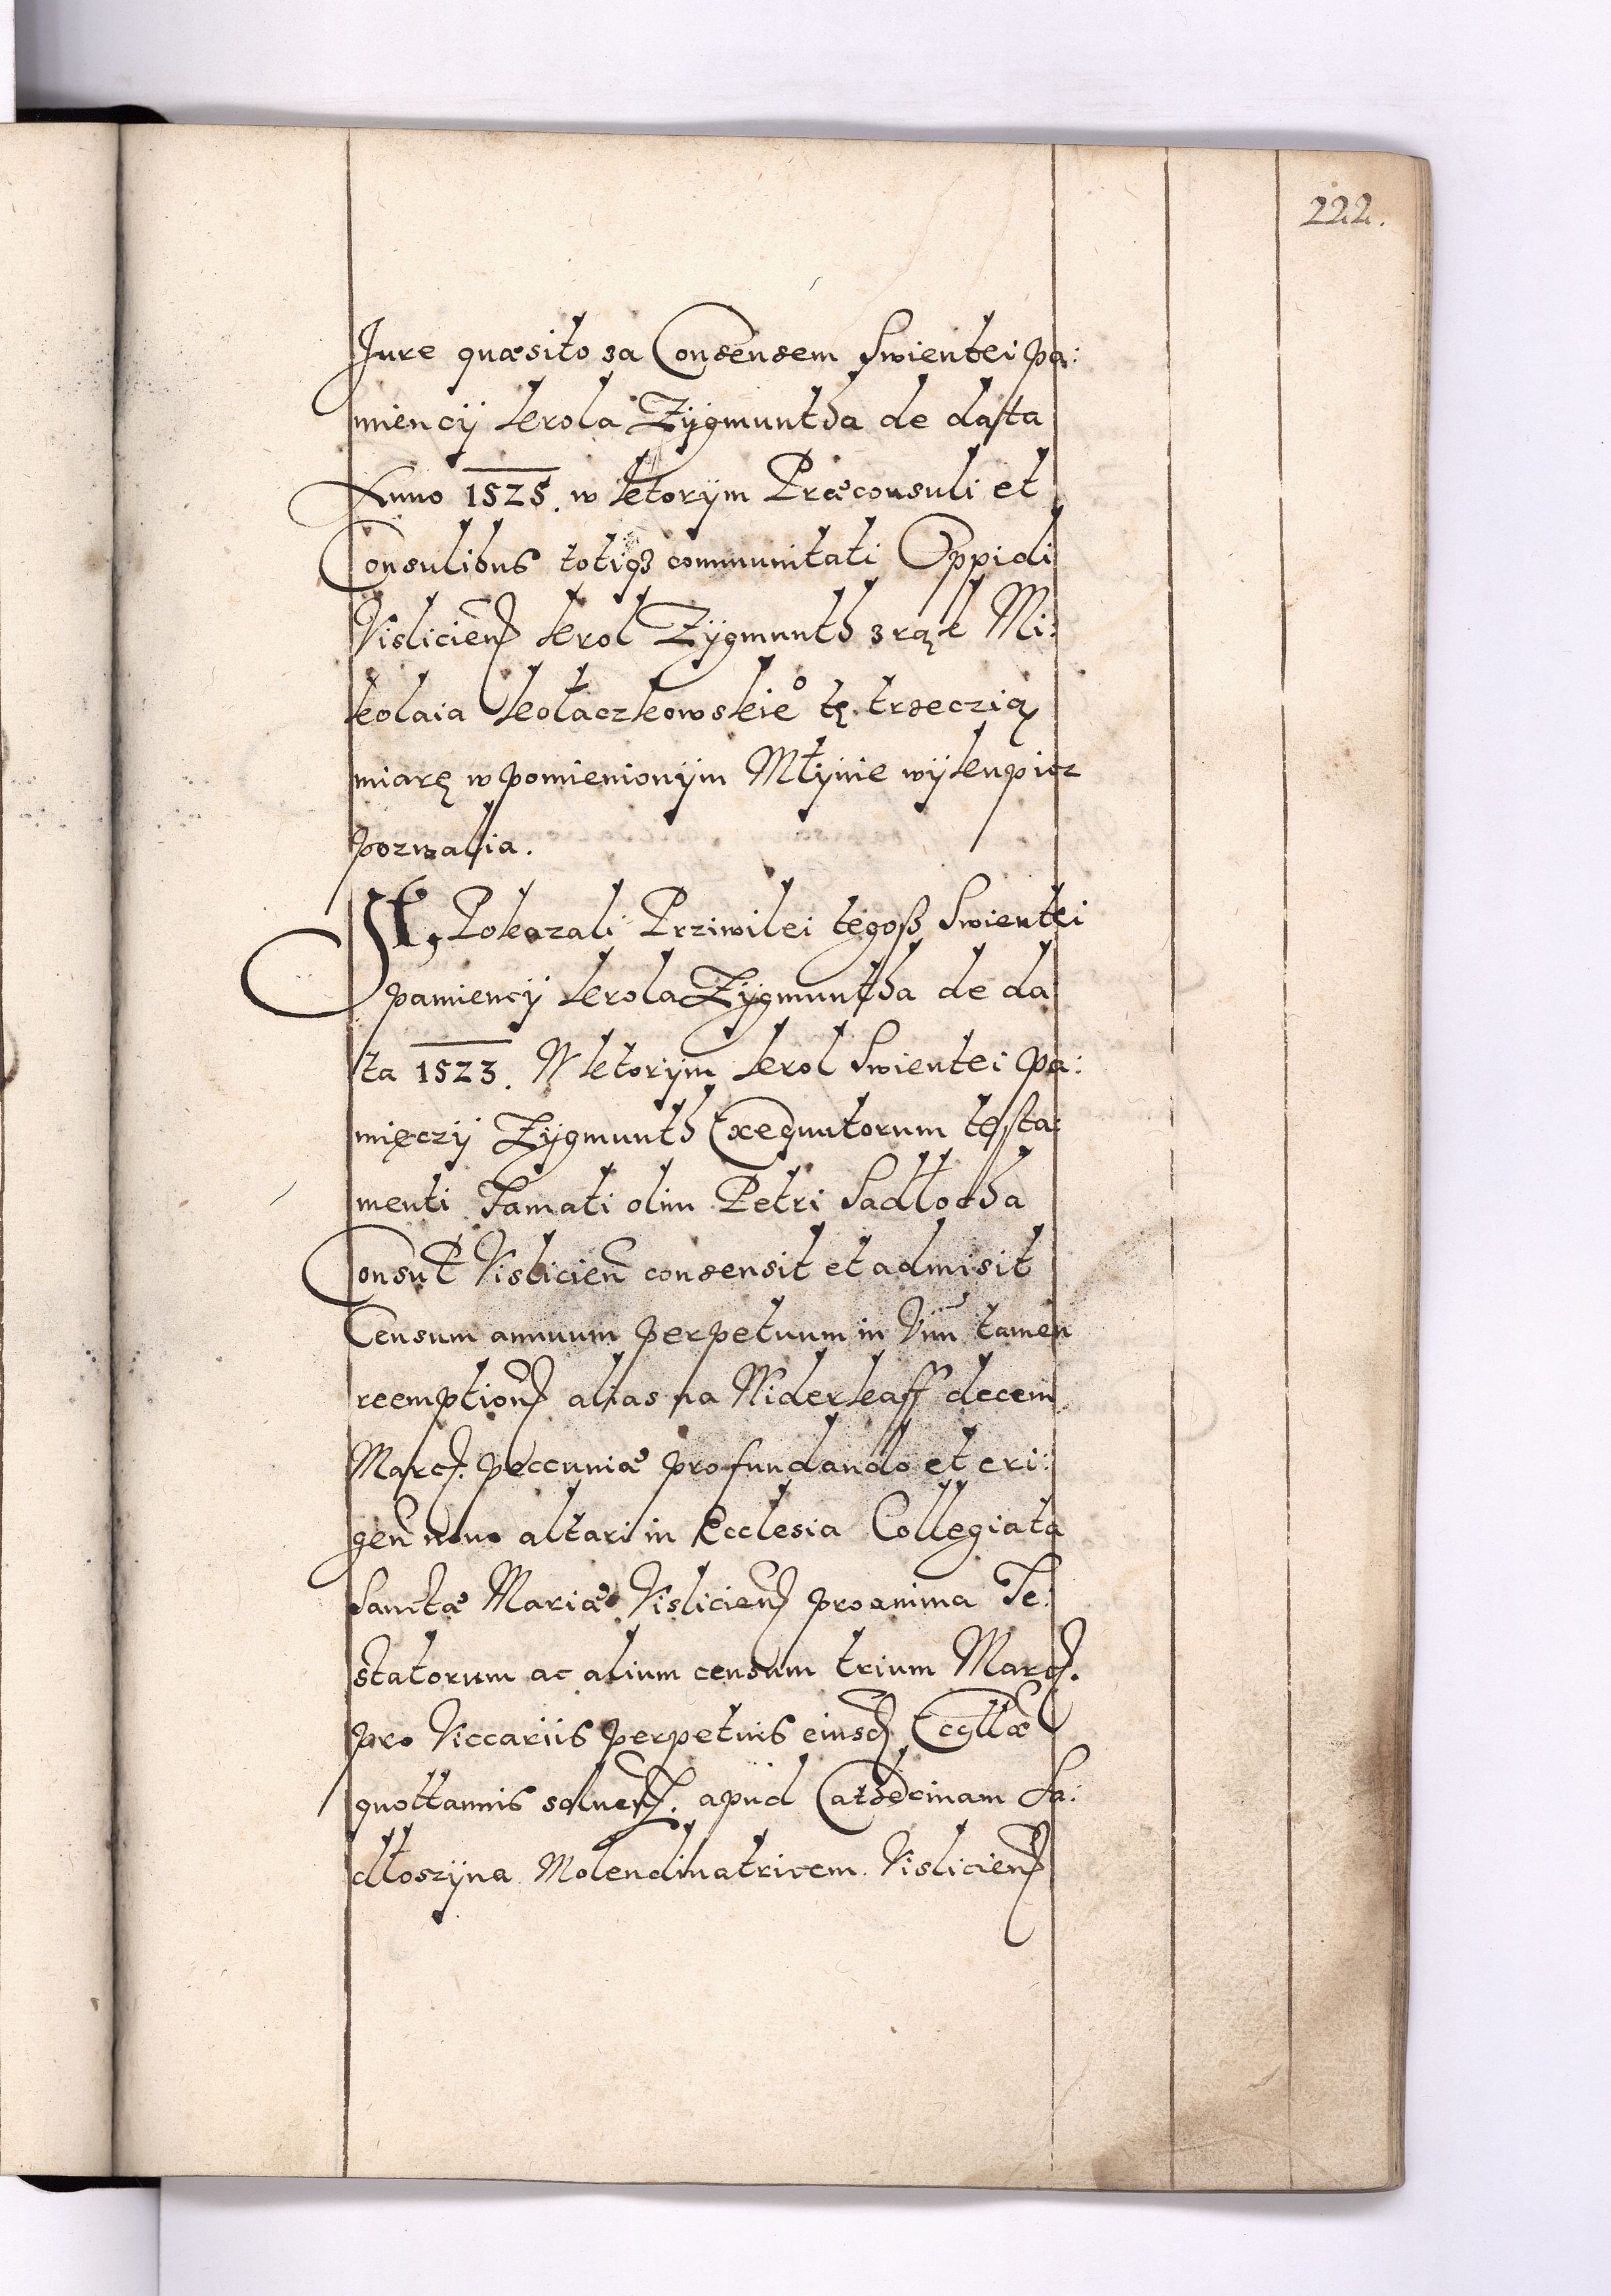 222.
Jure quæsito za Consensem Swientei pa:
miencÿ krola Zÿgmuntha de data
Anno 1525. w ktorÿm Præconsuli et
Consulibus totiqꝫ communitati Oppidi
Visliciens̃ krol Zÿgmunth z rąk Mi:
kolaia Kołaczkowskie° tę trzeczią
miarę w pomienionÿm Młÿnie wÿkupicz
pozwalia.
It, Pokazali Przÿwilei tegoß Swientei
pamiencÿ krola Zÿgmuntha de da
ta 1523. W ktorÿm krol Swientei pa:
mięczÿ Zÿgmunth Exequutorum testa:
menti Famati olim Petri Sadłocha
Consul̃ Vislicieñ consensit et admisit
Censum annuum perpetuum in Vim̃ tamen
reemptioñ alias na Widerkaff decem
Marc̃. peccuniæ pro fundando et eri:
geñ novo altari in Ecclesia Collegiata
Sanctæ Mariæ Visliciens̃ pro anima Te:
statorum ac alium censum trium Marc̃.
pro Viccariis perpetuis eiusd̃ Eccl̃læ
quottannis solueñ. apud Cathecinam Sa:
dłoszÿna Molendinatricem Visliciens̃